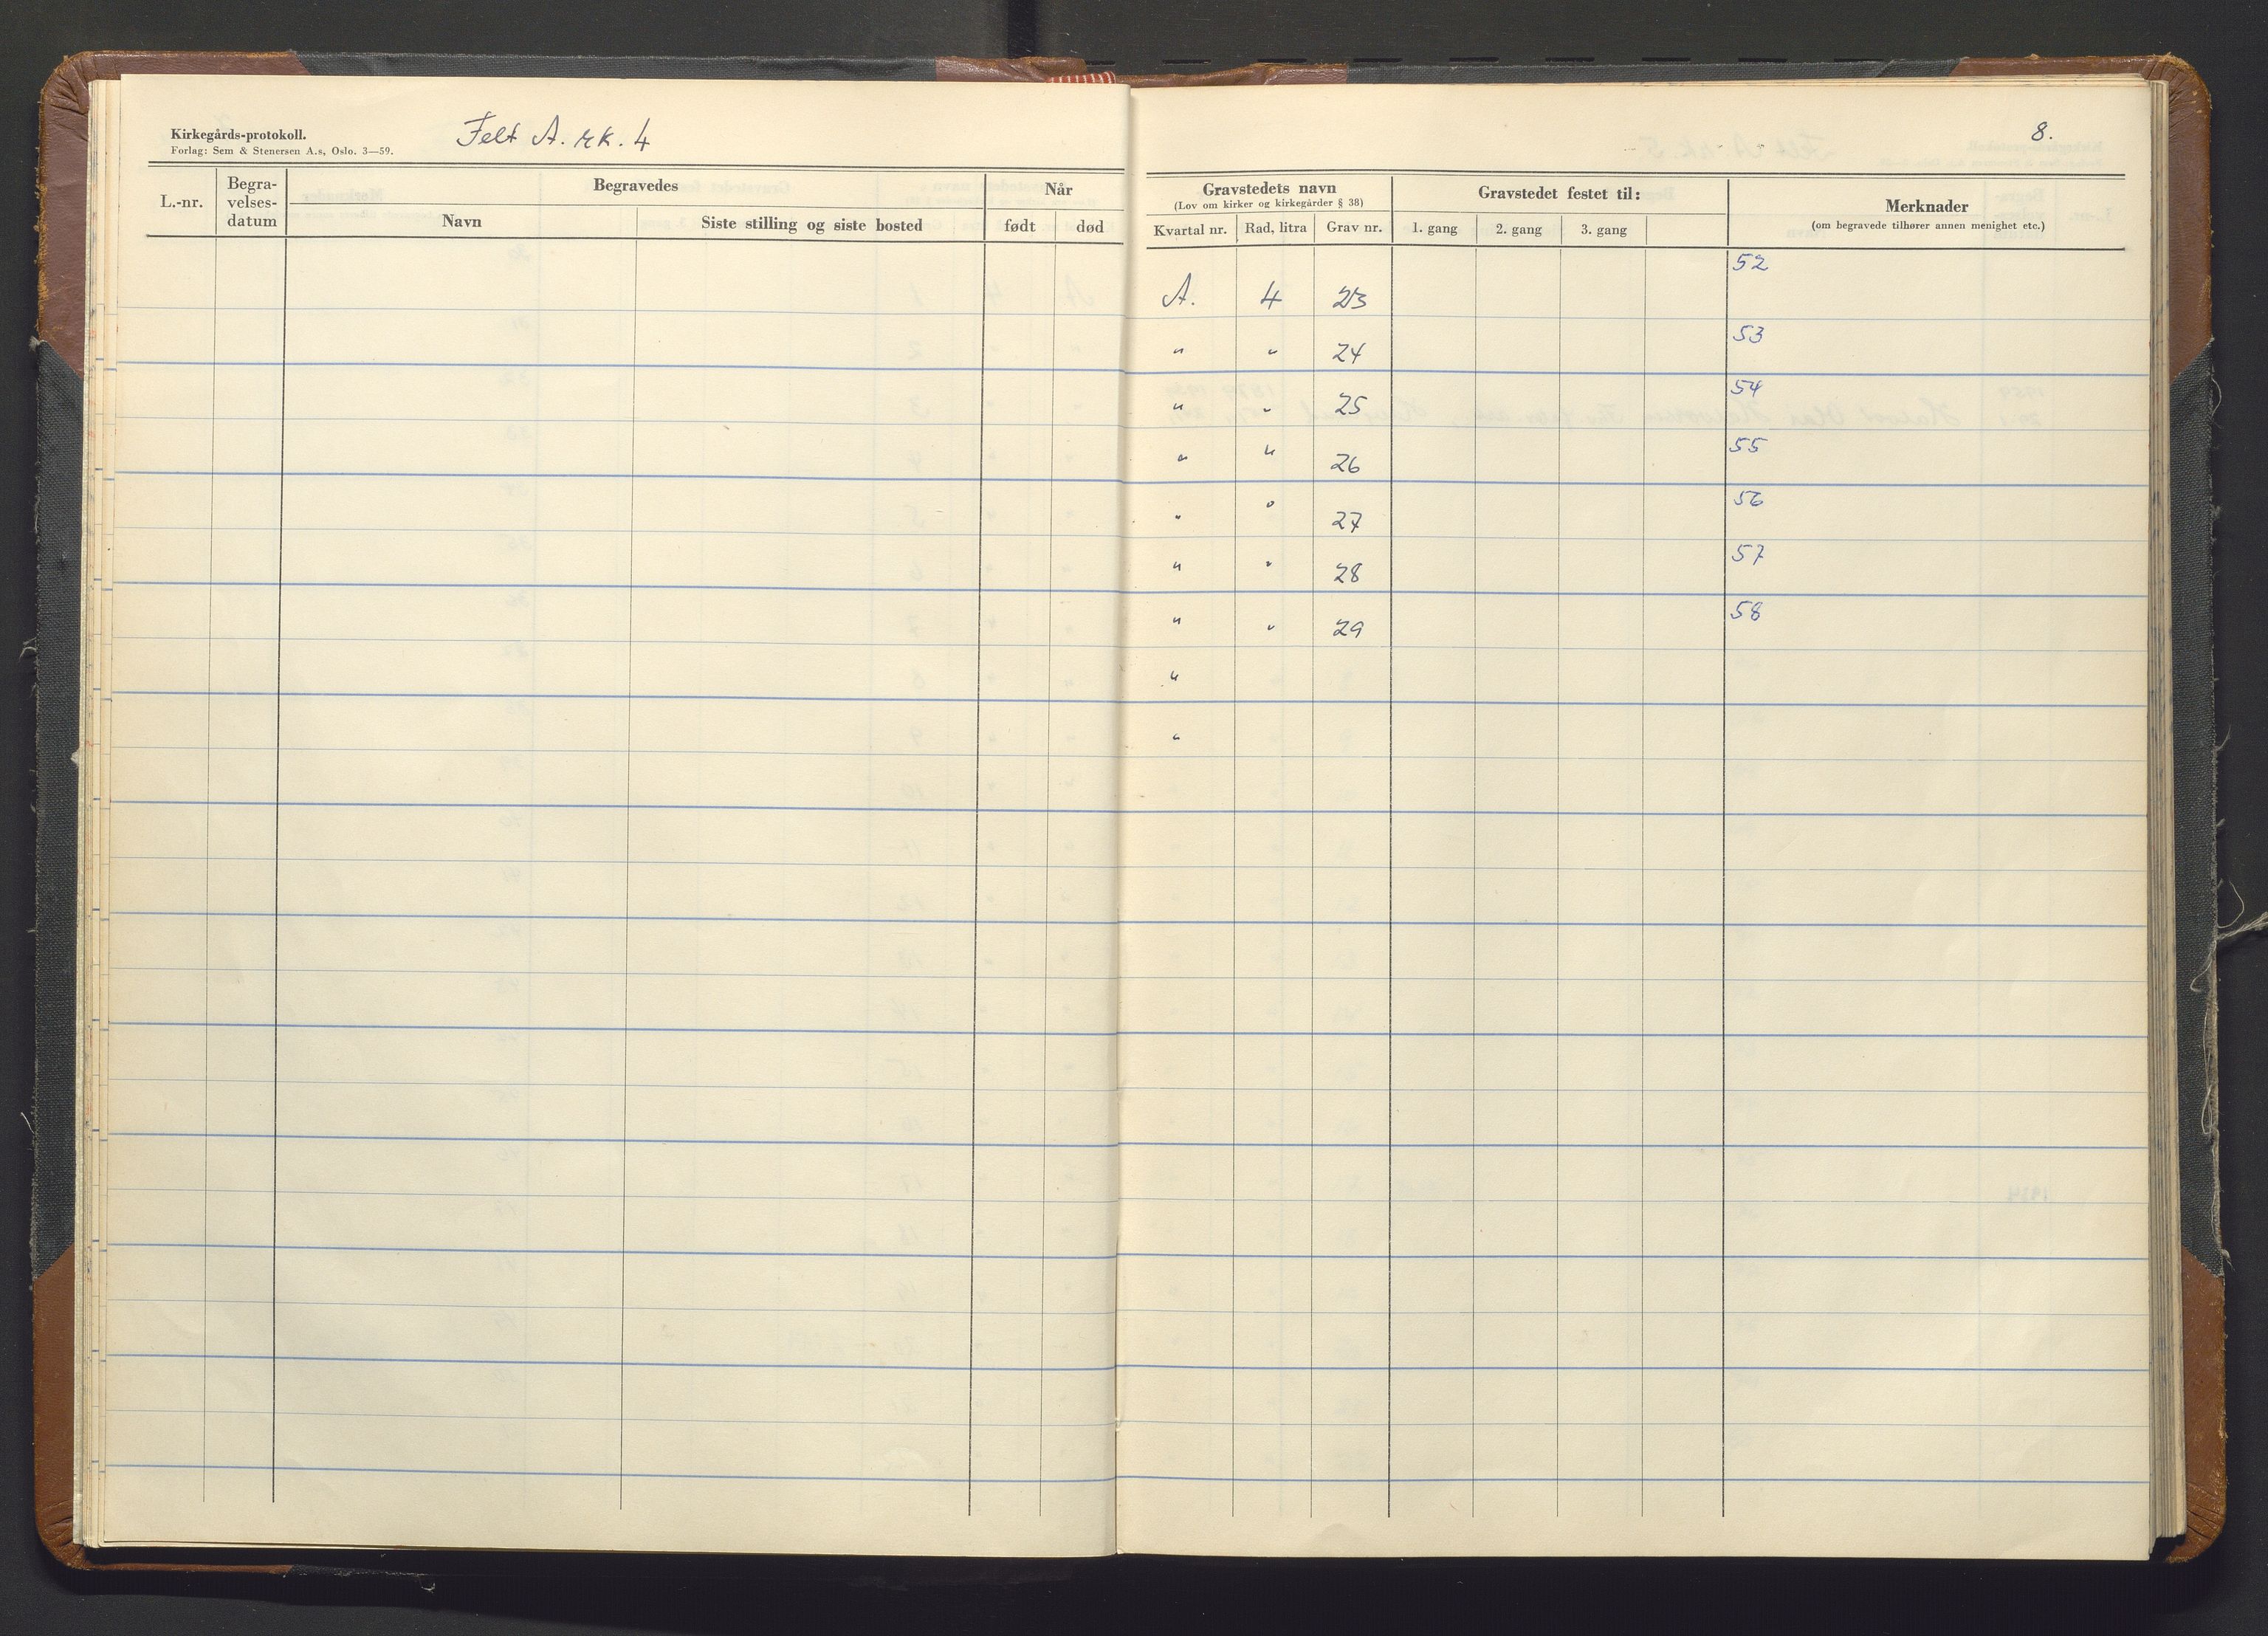 Kirkegårds-protokoll.
Forlag: Sem & Stenersen A.s, Oslo. 3—59.
Felt A. rk. 4
8.
L.-nr.
Begra-
velses-
datum
Begravedes
Navn
Siste stilling og siste bosted
Når
født
død
Gravstedets navn
(Lov om kirker og kirkegårder § 38)
Kvartal nr.
Rad, litra
Grav nr.
Gravstedet festet til:
1. gang
2. gang
3. gang
Merknader
(om begravede tilhører annen menighet etc.)
A. 4 23 52
" " 24 53
" " 25 54
" " 26 55
" " 27 56
" " 28 57
" " 29 58
"
"